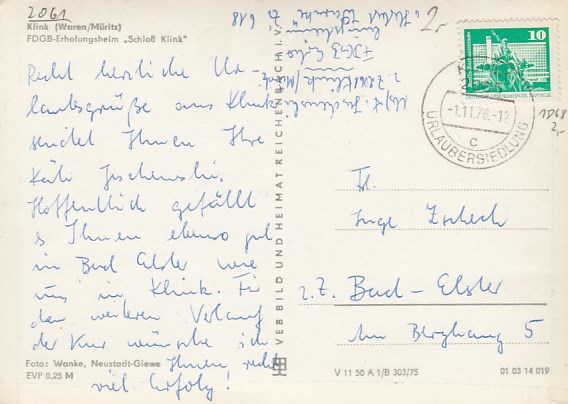 2061
Klink (Waren/Müritz)
FDGB-Erholungsheim „Schloß Klink“
618
Recht herzliche Ur-
laubsgrüße aus Klink
sendet Ihnen Ihre
Käte Jeschenski.
Hoffentlich gefällt
es Ihnen ebenso gut
in Bad Elster wie
uns in Klink. Für
den weiteren Verlauf
der Kur wünsche ich
Ihnen recht
viel Erfolg!
Foto: Wanke, Neustadt-Glewe
EVP 0,25 M
VEB BILD UND HEIMAT REICHENBACH I. V.
K. Jeschenski
z. Z. Klink/Müritz
FDGB
2,-
10
-1.11.76.-12
c
URLAUBERSIEDLUNG
1968
2,-
Fr.
Inge Zschech
z. Z. Bad-Elster
Am Berghang 5
V 11 50 A 1/B 303/75
01 03 14 019